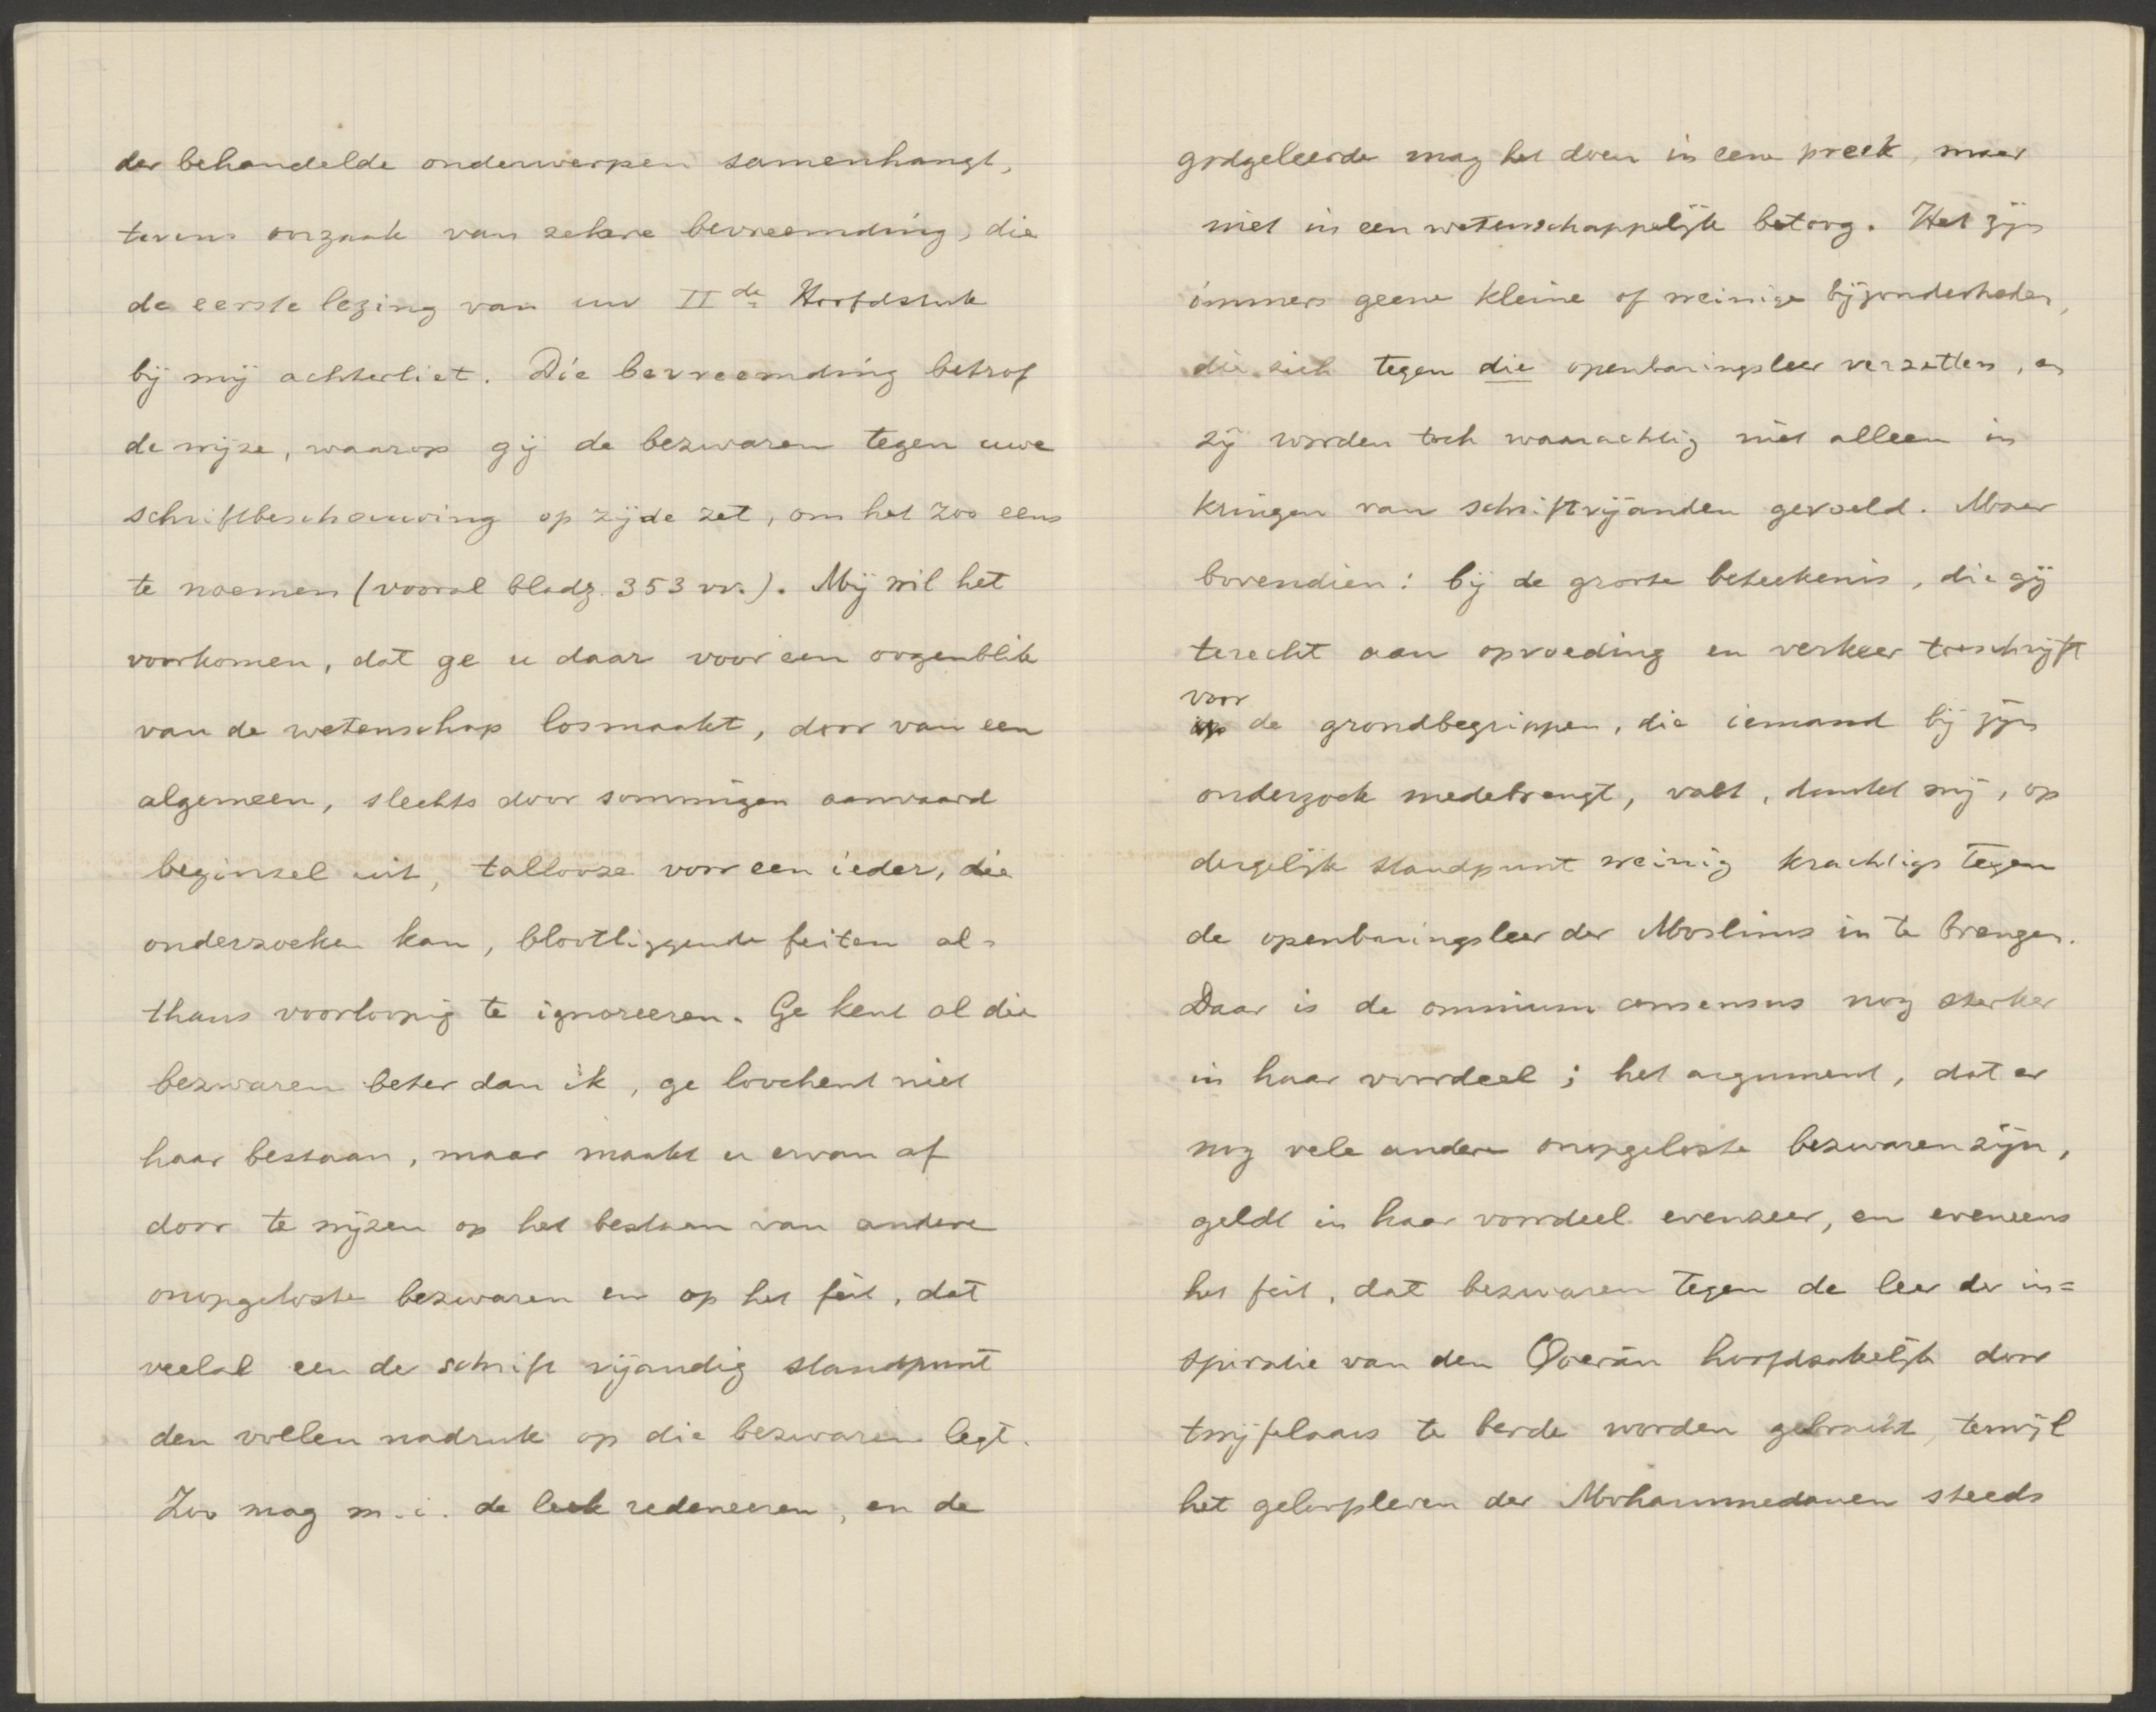 der behandelde onderwerpen samenhangt,
tevens oorzaak van zekere bevreemding, die
de eerste lezing van uw IIde Hoofdstuk
bij mij achterliet. Die bevreemding betrof
de wijze, waarop gij de bezwaren tegen uwe
schriftbeschouwing op zijde zet, om het zoo eens
te noemen (vooral bladz. 353 vv.). Mij wil het
voorkomen, dat ge u daar voor een oogenblik
van de wetenschap losmaakt, door van een
algemeen, slechts door sommigen aanvaard
beginsel uit, tallooze voor een ieder, die
onderzoeken kan, blootliggende feiten al-
thans voorloopig te ignoreeren. Ge kent al die
bezwaren beter dan ik, ge loochent niet
haar bestaan, maar maakt u ervan af
door te wijzen op het bestaan van andere
onopgeloste bezwaren en op het feit, dat
veelal een de schrift vijandig standpunt
den vollen nadruk op die bezwaren legt.
Zoo mag m.i. de leek redeneeren, en de
godgeleerde mag het doen in eene preek, maar
niet in een wetenschappelijk betoog. Het zijn
immers geene kleine of weinige bijzonderheden,
die zich tegen die openbaringsleer verzetten, en
zij worden toch waarachtig niet alleen in
kringen van schriftvijanden gevoeld. Maar
bovendien: bij de groote beteekenis, die gij
terecht aan opvoeding en verkeer toeschrijft
voor
op de grondbegrippen, die iemand bij zijn
onderzoek medebrengt, valt, dunkt mij, op
dergelijk standpunt weinig krachtigs tegen
de openbaringsleer der Moslims in te brengen.
Daar is de omnium consensus nog sterker
in haar voordeel; het argument, dat er
nog vele andere onopgeloste bezwaren zijn,
geldt in haar voordeel evenzeer, en eveneens
het feit, dat bezwaren tegen de leer der in=
spiratie van den Qoerān hoofdzakelijk door
twijfelaars te berde worden gebracht, terwijl
het geloofsleven der Mohammedanen steeds